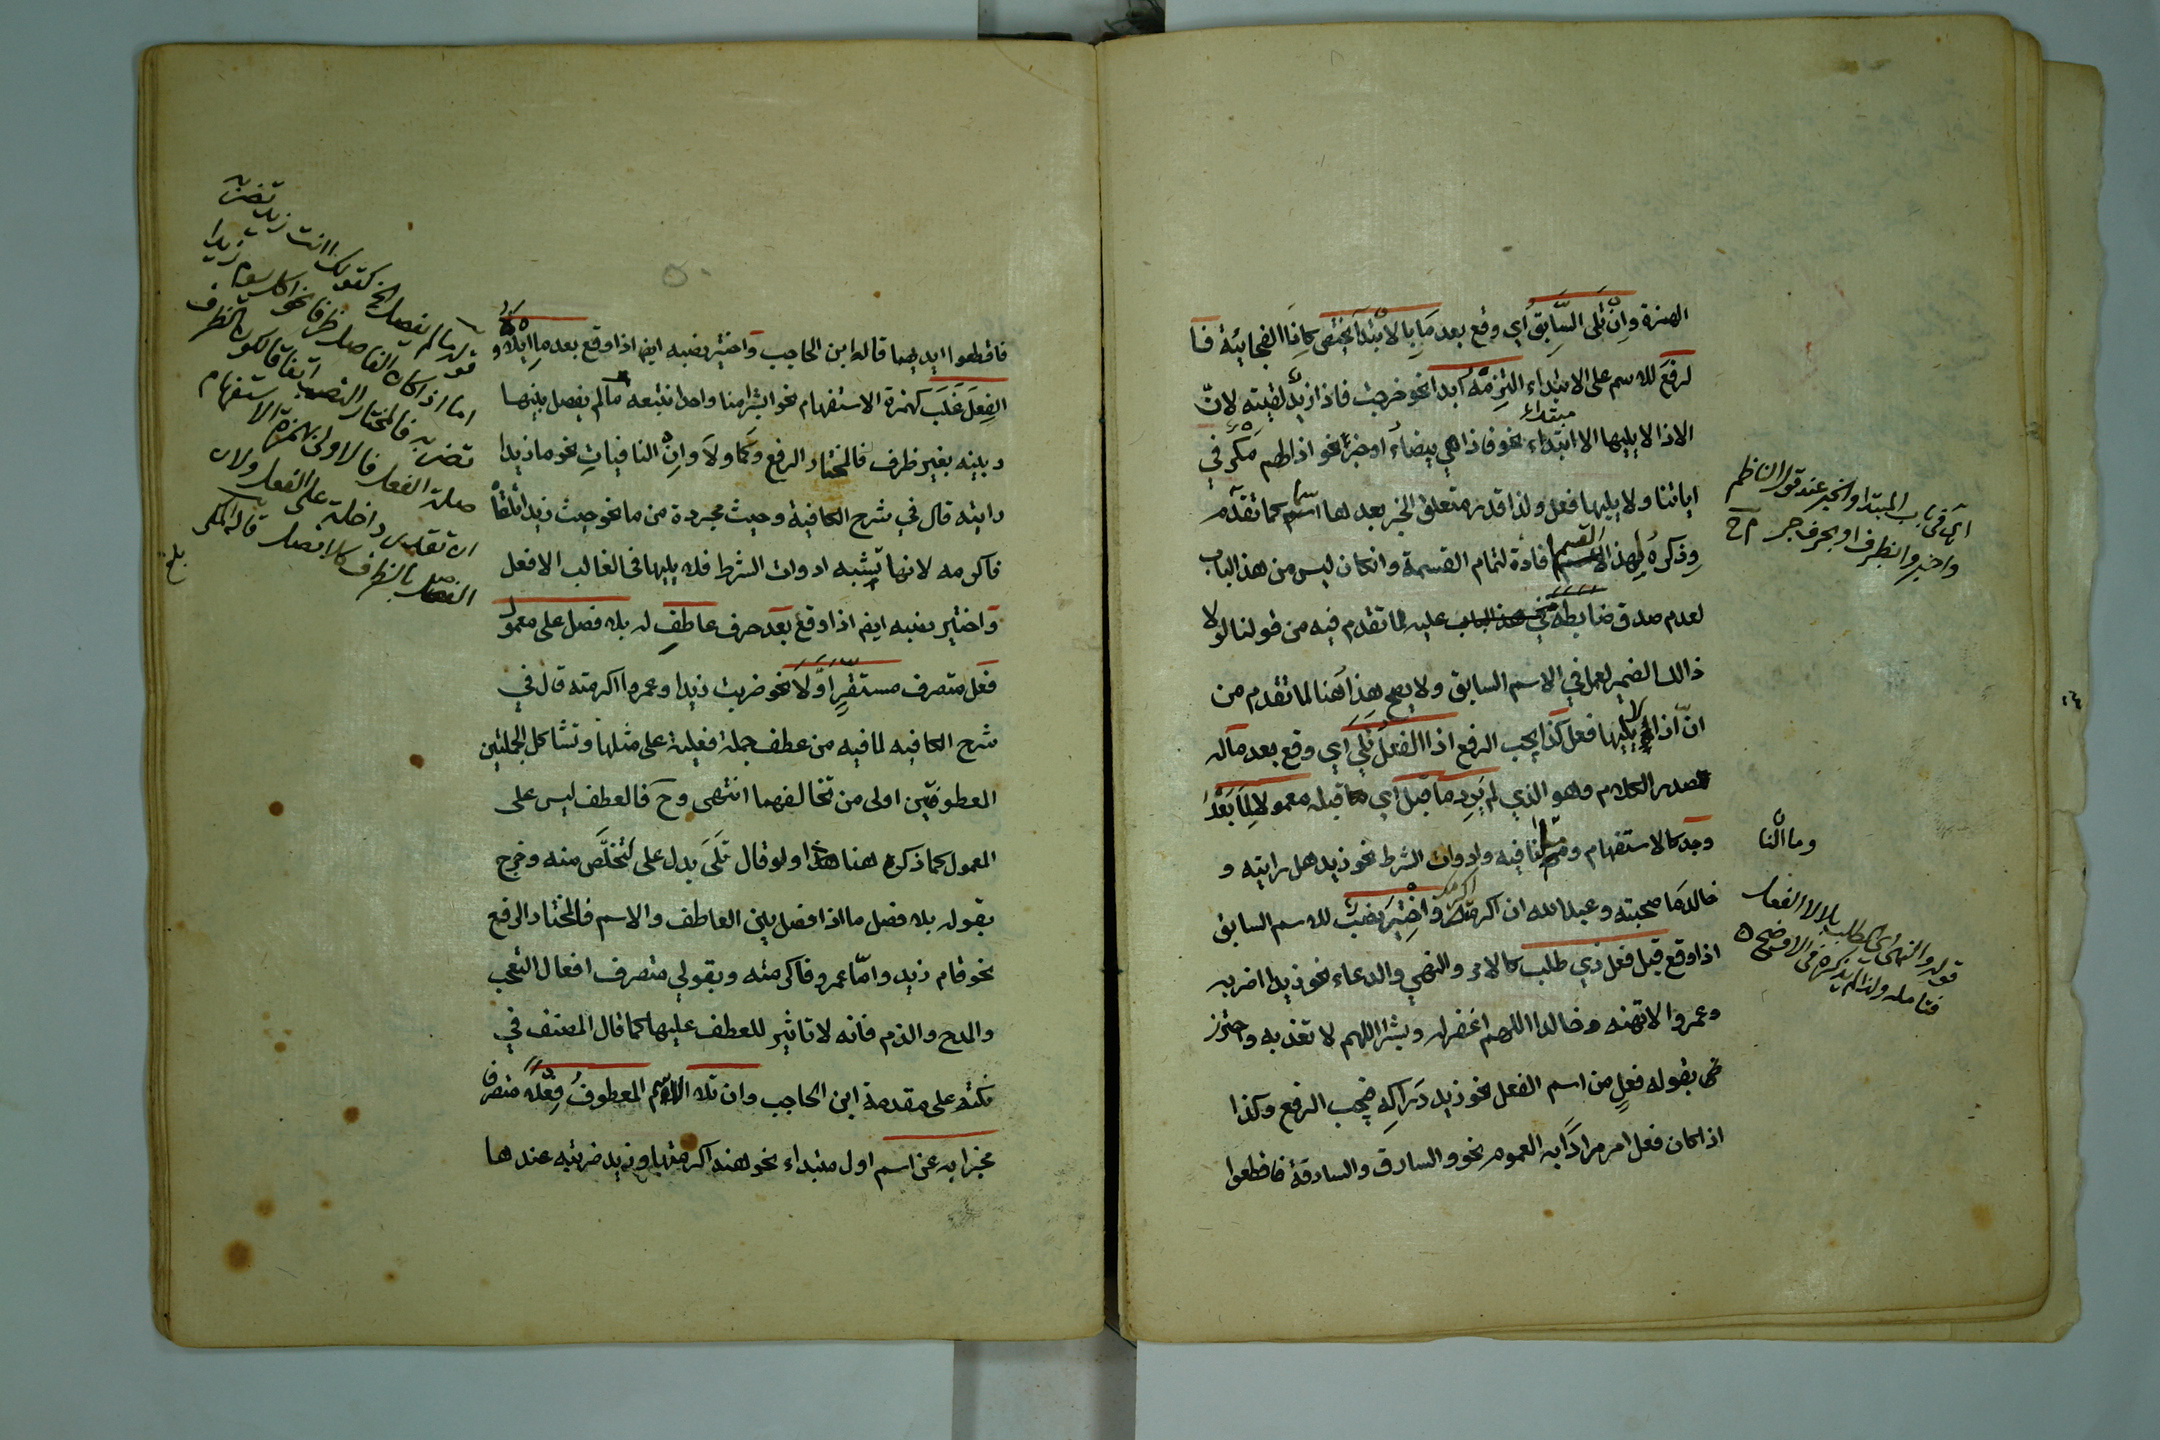 الهمزة وان تلى السابق اي وقع بعد ما بالابتدا يختص كاذا الفجائية فا
لرفع للاسم على الابتداء التزمه ابدا نحو خرجت فاذا زيد لقيته لان
الاذا لا يليها الا ابتداء نحو فاذا هي بيضاء او خبر نحو اذا لهم مكر في
مبتداء
اياتنا ولا يليها فعل ولذا قدر متعلق الخبر بعدها اسم كما تقدم
وذكره لهذا القسم افادة لتمام القسمة وان كان ليس من هذا الباب
لعدم صدق ضابطه عليه لما تقدم فيه من قولنا لولا
ذالك الضمير لعمل في الاسم السابق ولا يصح هذا هنا لما تقدم من
ان اذا لا يليها فعل كذا يجب الرفع اذا الفعل تلى اي وقع بعد ماله
صدر الكلام وهو الذي لم يرد ما قبل اي ما قبله معمولا لما بعد
وجد كالاستفهام وما النافيه وادوات الشرط نحو زيد هل رايته و
خالد ما صحبته وعبدالله ان اكرمته اكرمك واختير نصب للاسم السابق
اذا وقع قبل فعل ذي طلب كالامر والنهي والدعاء نحو زيدا اضربه
وعمروا لا تهنه وخالدا اللهم اغفر له وبشرا اللهم لا تعذبه واحترز
بقوله فعل من اسم الفعل نحو زيد دراكه فيجب الرفع وكذا
اذا كان فعل امر مرادا به العموم نحو والسارق والسارقة فاقطعوا
اي في باب المبتدا والخبر عند قول الناظم
واخبروا بظرف او بحرف جر
وما النا
قوله والنهي
فتامله ولذا لم يذكره في الاوضح
فاقطعوا ايديهما قاله ابن الحاجب واختير نصبه ايضا اذا وقع بعد ما ايلاوه
الفعل غلب كهمزة الاستفهام نحو ابشرا منا واحدا نتبعه مالم يفصل بينها
وبينه بغير ظرف فالمختار الرفع وكما ولا وان النافيات نحو ما زيدا
رايته قال في شرح الكافية وحيث مجردة من ما نحو حيث زيدا تلقاه
فاكرمه لانها تشبه ادوات الشرط فلا يليها في الغالب الا فعل
واختير نصبه ايضا اذا وقع بعد حرف عاطف له بلا فصل على معمول
فعل متصرف مستقر اولا نحو ضربت زيدا وعمروا اكرمته قال في
شرح الكافيه لما فيه من عطف جملة فعلية على مثلها وتشاكل الجملتين
المعطوفتين اولى من تخالفهما انتهى وح فالعطف ليس على
المعمول كما ذكره هنا ولو قال تلى بدل على لتخلص منه وخرج
بقوله بلا فصل ما اذا فصل بين العاطف والاسم فالمختار الرفع
نحو قام زيد واما عمرو فاكرمته وبقولي متصرف افعال التعجب
والمدح والذم فانه لا تاثير للعطف عليها كما قال المصنف في
نكته على مقدمة ابن الحاجب وان تلا الاسم المعطوف فعلا متصرفا
مخبرا به عن اسم اول مبتداء نحو هند اكرمتها وزيد ضربته عندها
قوله مالم يفصل الخ كقولك اانت زيد تضربه
اما اذا كان الفاصل ظرفا نحو اكل يوم زيدا
تضربه فالمختار النصب اتفاقا لكون الظرف
صلة الفعل فالاولى بهمزة الاستفهام
ان تقدر داخلة على الفعل ولان
الفصل بالظرف كلا فصل قاله المكي
بلغ